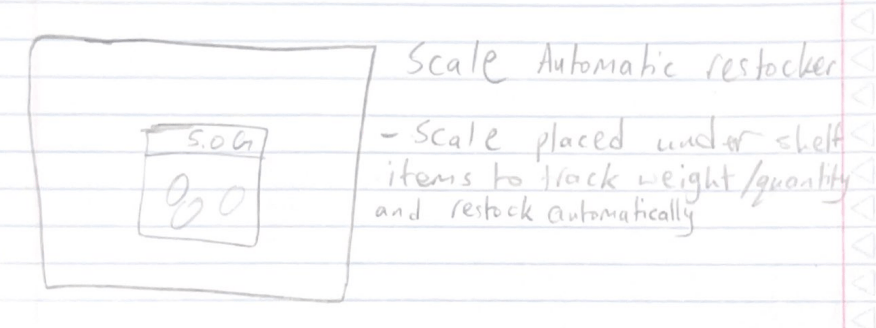 Scale Automatic restocker
5.0G
- Scale placed under shelf
items to track weight/quantity
and restock automatically